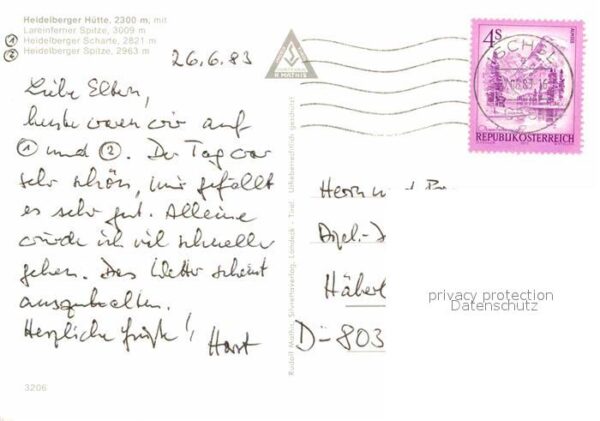 Heidelberger Hütte, 2300 m, mit
Lareinferner Spitze, 3009 m
① Heidelberger Scharte, 2821 m
② Heidelberger Spitze, 2963 m
26.6.83
Liebe Eltern,
heute waren wir auf
① und ②. Der Tag war
sehr schön, mir gefällt
es sehr gut. Alleine
würde ich viel schneller
gehen. Das Wetter scheint
auszuhalten.
Herzliche Grüße! Horst
3206
R MATHIS
Rudolf Mathis, Silvrettaverlag, Landeck - Tirol. Urheberrechtlich geschützt
4S
REPUBLIK ÖSTERREICH
ISCHGL
Herrn
Häberl
D-803
privacy protection
Datenschutz